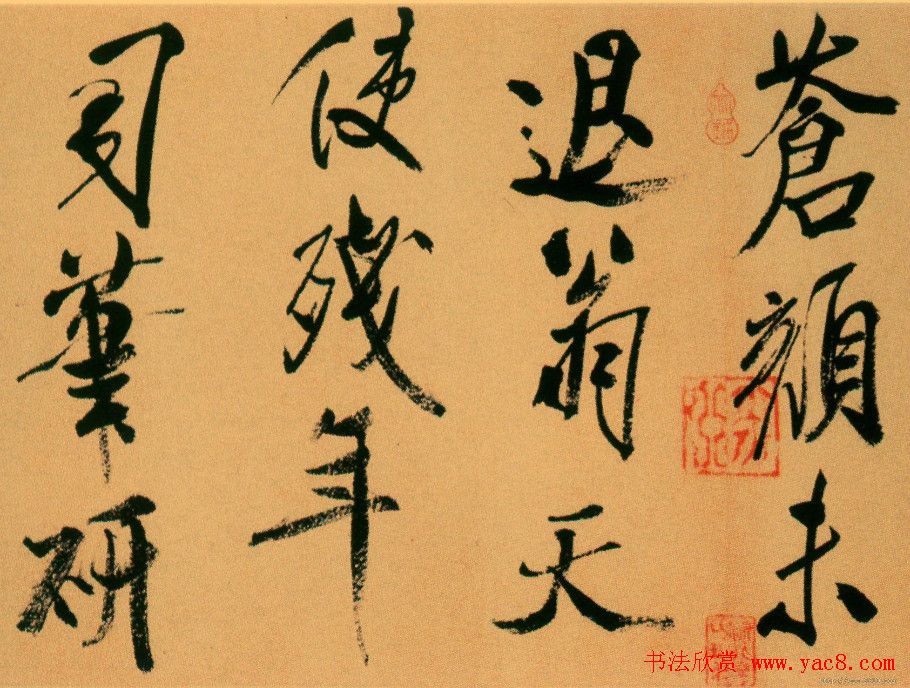 蒼顔未
退翁天
使殘年
司筆研
书法欣赏 www.yac8.com